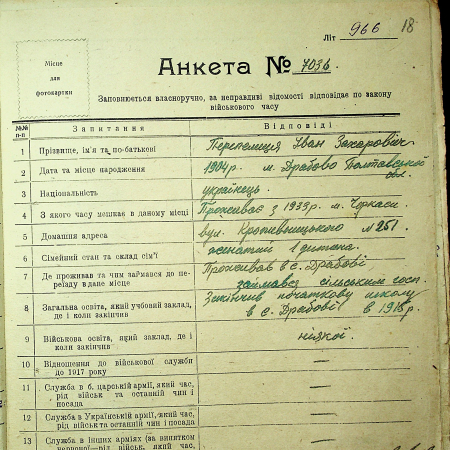 Літ 966 18
Місце
для
фотокартки
Анкета № 7036.
Заповнюється власноручно, за неправдиві відомості відповідає по закону
військового часу
№№ п-п Запитання Відповіді
1 Прізвище, ім'я та по-батькові Перепелиця Іван Захарович
2 Дата та місце народження 1904р. м. Драбово Полтавської обл.
3 Національність українець.
4 З якого часу мешкає в даному місці Проживає з 1933р. м. Черкаси
5 Домашня адреса вул. Кропивницького № 251.
6 Сімейний стан та склад сім'ї жонатий 1 дитина.
7 Де проживав та чим займався до пе- Проживав в с. Драбові,
реїзду в дане місце займався сільським госп.
8 Загальна освіта, який учбовий заклад, Закінчив початкову школу
де і коли закінчив в с. Драбові в 1918р.
9 Військова освіта, який заклад, де і
коли закінчив ніякої.
10 Відношення до військової служби —
до 1917 року
11 Служба в б. царській армії, який час, —
рід військ та останній чин і
посада
12 Служба в Українській армії, який час, —
рід військ та останній чин і посада
13 Служба в інших арміях (за винятком —
червоної—рід військ, який час,